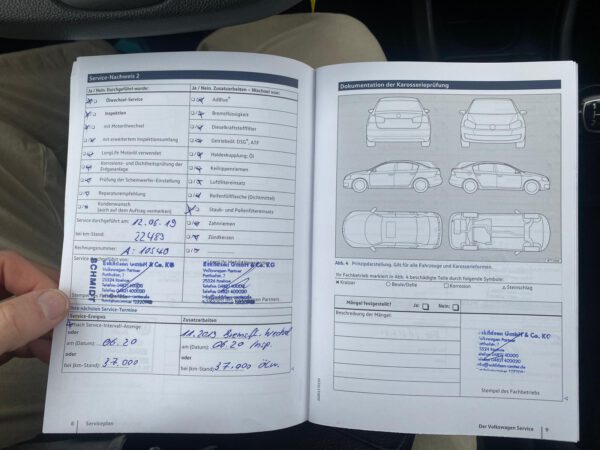 Service-Nachweis 2
Ja / Nein Durchgeführt wurde:
Ölwechsel-Service
Inspektion
mit Motorölwechsel
mit erweitertem Inspektionsumfang
LongLife Motoröl verwendet
Korrosions- und Dichtheitsprüfung der
Erdgasanlage
Prüfung der Scheinwerfer-Einstellung
Reparaturempfehlung
Kundenwunsch
(auch auf dem Auftrag vermerken)
Service durchgeführt am: 12.06.19
bei km-Stand: 22483
Rechnungsnummer: A: 10540
Service durchgeführt von:
SCHMIDT
Eskildsen GmbH & Co. KG
Volkswagen Partner
25524 Itzehoe
Stempel des
Partners.
Ihre nächsten Service-Termine
Service-Ereignis
nach Service-Intervall-Anzeige
oder
am (Datum): 06.20
oder
bei (km-Stand): 37.000
Ja / Nein Zusatzarbeiten – Wechsel von:
AdBlue®
Bremsflüssigkeit
Dieselkraftstofffilter
Getriebeöl: DSG®, ATF
Haldexkupplung: Öl
Keilrippenriemen
Luftfiltereinsatz
Reifenfüllflasche (Dichtmittel)
Staub- und Pollenfiltereinsatz
Zahnriemen
Zündkerzen
Eskildsen GmbH & Co. KG
Volkswagen Partner
25524 Itzehoe
Zusatzarbeiten
oder
am (Datum): 06.20 Insp.
oder
bei (km-Stand): 37.000
8 Serviceplan
Dokumentation der Karosserieprüfung
Abb. 4 Prinzipdarstellung. Gilt für alle Fahrzeuge und Karosserieformen.
Ihr Fachbetrieb markiert in Abb. 4 beschädigte Teile durch folgende Symbole:
Kratzer Beule/Delle Korrosion Steinschlag
Mängel festgestellt? Ja: Nein:
Beschreibung der Mängel:
Eskildsen GmbH & Co. KG
Volkswagen Partner
25524 Itzehoe
Stempel des Fachbetriebs
Der Volkswagen Service 9